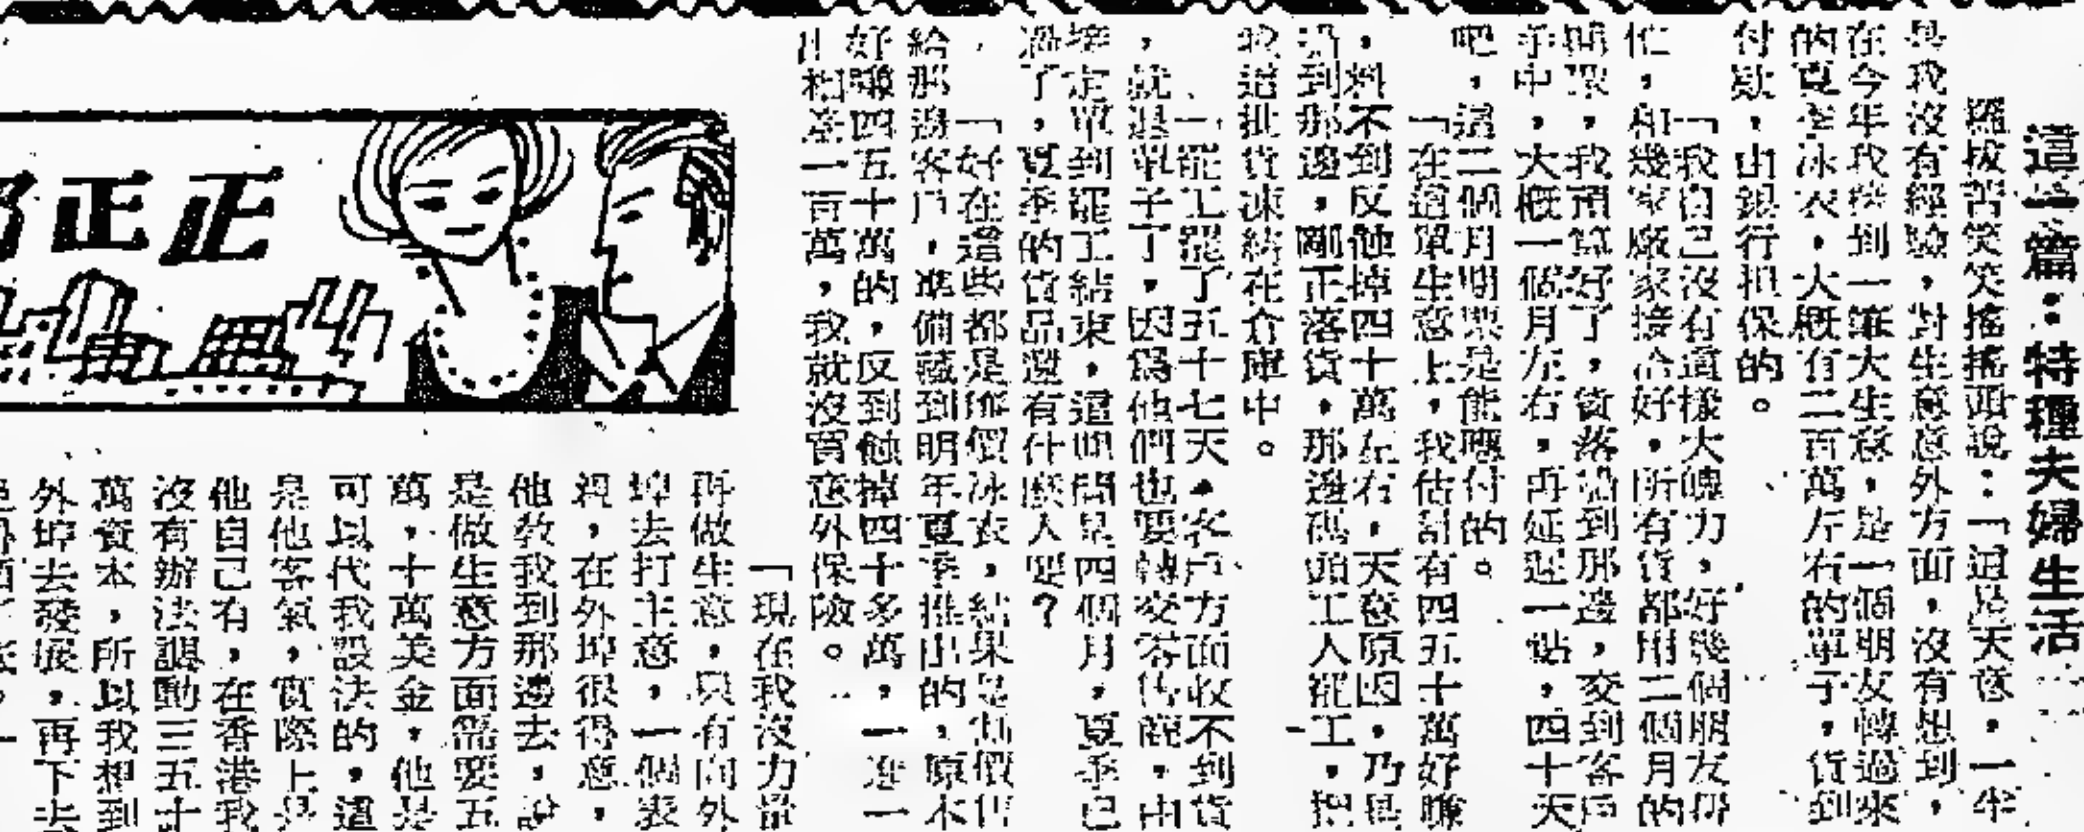 這一篇：特種夫婦生活
羅拔苦笑笑搖搖頭說：「這是天意，一半
是我沒有經驗，對生意意外方面，沒有想到，
在今年我接到一筆大生意，是一個朋友轉過來
的夏季泳衣，大概有二百萬左右的單子，貨到
付欵，由銀行担保的。
「我自己沒有這樣大魄力，好幾個朋友帮
忙，和幾家廠家接洽好，所有貨都用二個月的
期票，我預算好了，貨落船到那邊，交到客戶
手中，大概一個月左右，再延遲一點，四十天
吧，這二個月期票是能應付的。
「在這單生意上，我估計有四五十萬好賺
，料不到反蝕掉四十萬左右，天意原因，乃是
船到那邊，剛正落貨，那邊碼頭工人罷工，把
我這批貨凍結在倉庫中。
「一罷工罷了五十七天，客戶方面收不到貨
，就退單子了，因爲他們也要轉交零售商，由
接定單到罷工結束，這期間是四個月，夏季已
過了，夏季的貨品還有什麽人要？
「好在這些都是廉價泳衣，結果是劈價售
給那邊客戶，準備藏到明年夏季推出的，原本
好賺四五十萬的，反到蝕掉四十多萬，一進一
出相差一百萬，我就沒買意外保險。
「現在我沒力量
再做生意，只有向外
埠去打主意，一個表
親，在外埠很得意，
他教我到那邊去，說
是做生意方面需要五
萬，十萬美金，他是
可以代我設法的，這
是他客氣，實際上是
他自己有，在香港我
沒有辦法調動三五十
萬資本，所以我想到
外埠去發展，再下去
正正